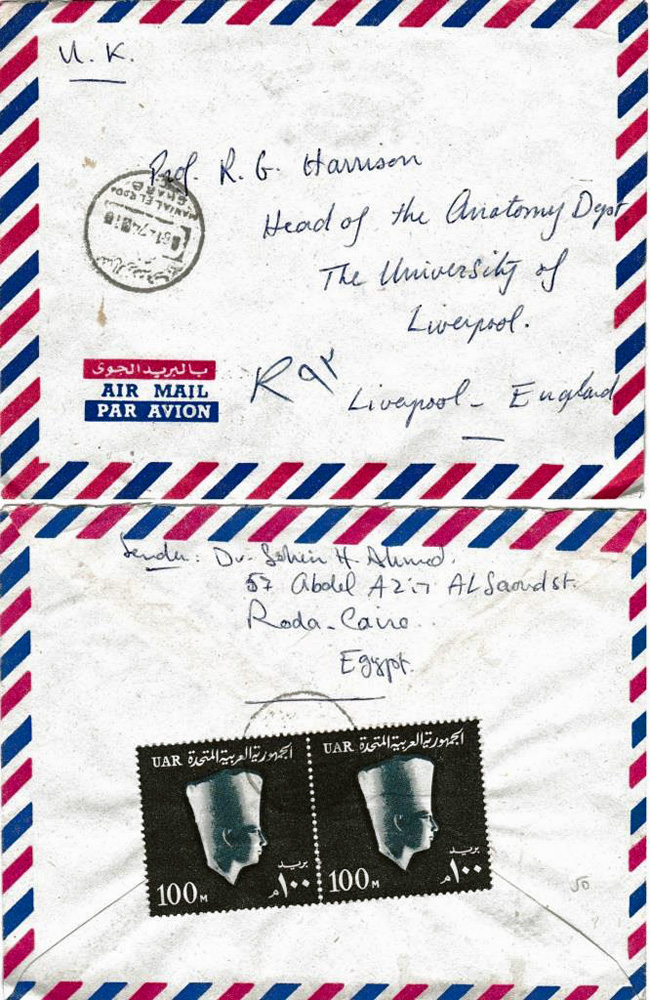 U. K.
Prof. R. G. Harrison
Head of the Anatomy Dept
The University of
Liverpool.
Liverpool - England
MANIAL EL RODA
GHARB
بالبريد الجوى
AIR MAIL
PAR AVION
R ٩٢
Sender: Dr. H. Ahmed.
57 Abdel Aziz AL Saoud st.
Roda - Cairo
Egypt
UAR الجمهورية العربية المتحدة
100 M بريد ١٠٠ م
UAR الجمهورية العربية المتحدة
100 M بريد ١٠٠ م
50